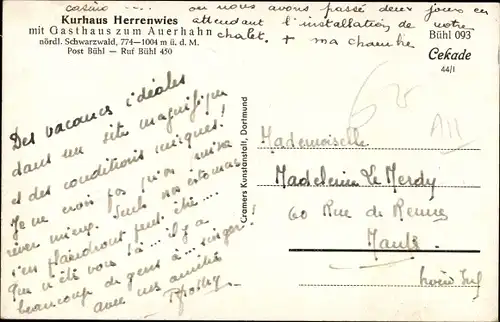 casino ... où nous avons passé deux jours en
attendant l'installation de notre
chalet. + ma chambre
Kurhaus Herrenwies
mit Gasthaus zum Auerhahn
nördl. Schwarzwald, 774—1004 m ü. d. M.
Post Bühl — Ruf Bühl 450
Bühl 093
Cekade
44/1
Des vacances idéales
dans un site magnifique
et des conditions uniques!
Je ne crois pas qu'on puisse
rêver mieux. Seuls nos estomacs
s'en plaindront peut être....
Que n'êtes vous là... il y a
beaucoup de gens à... singer!
avec nos amitiés
Cramers Kunstanstalt, Dortmund
Mademoiselle
Madeleine Le Merdy
60 Rue de Rennes
Nantes
Loire Inf